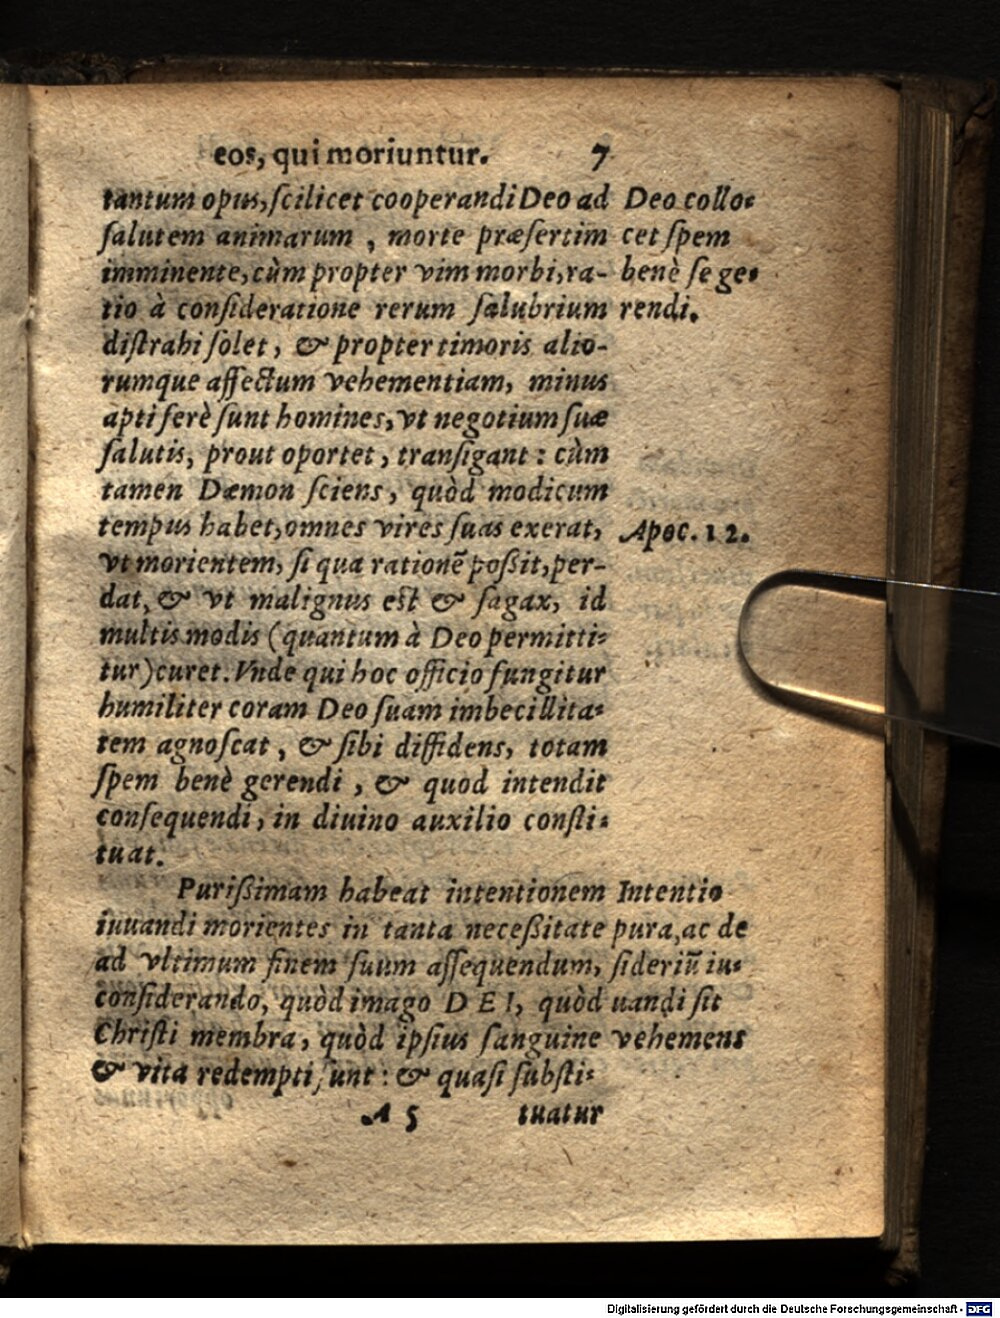 eos, qui moriuntur. 7
tantum opus, ſcilicet cooperandi Deo ad
ſalutem animarum, morte præſertim
imminente, cùm propter vim morbi, ra-
tio à conſideratione rerum ſalubrium
diſtrahi ſolet, & propter timoris alio-
rumque affectum vehementiam, minus
apti ferè ſunt homines, vt negotium ſuæ
ſalutis, prout oportet, tranſigant: cùm
tamen Dæmon ſciens, quòd modicum
tempus habet, omnes vires ſuas exerat,
vt morientem, ſi qua rationē poßit, per-
dat, & vt malignus eſt & ſagax, id
multis modis (quantum à Deo permitti-
tur) curet. Vnde qui hoc officio fungitur
humiliter coram Deo ſuam imbecillita-
tem agnoſcat, & ſibi diffidens, totam
ſpem benè gerendi, & quod intendit
conſequendi, in diuino auxilio conſti-
tuat.
Purißimam habeat intentionem
iuuandi morientes in tanta neceßitate
ad vltimum finem ſuum aſſequendum,
conſiderando, quòd imago DEI, quòd
Chriſti membra, quòd ipſius ſanguine
& vita redempti ſunt: & quaſi ſubſti-
A 5 tuatur
Deo collo-
cet ſpem
benè ſe ge-
rendi.
Apoc. 12.
Intentio
pura, ac de
ſideriū iu-
uandi ſit
vehemens
Digitalisierung gefördert durch die Deutsche Forschungsgemeinschaft - DFG